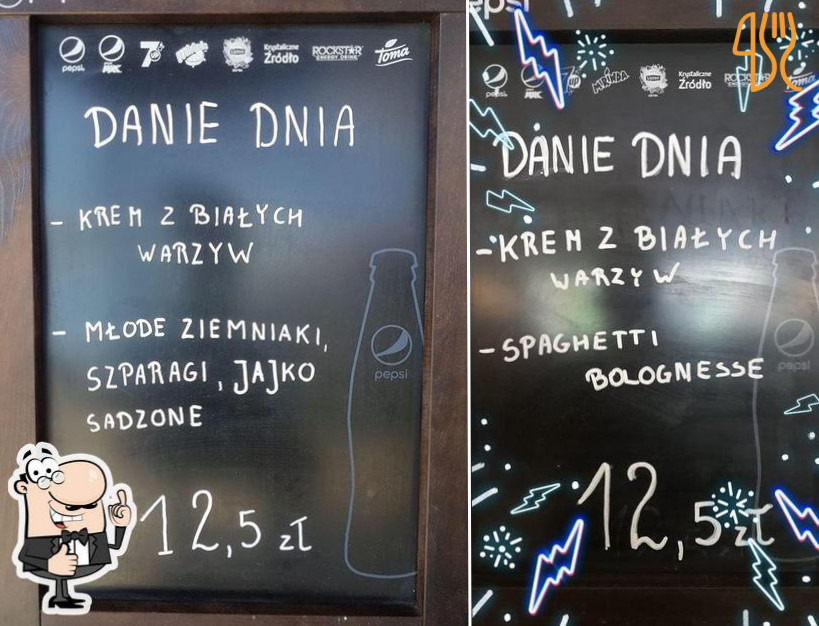 pepsi 7UP Mirinda Krystaliczne Źródło ROCKSTAR ENERGY DRINK Toma
DANIE DNIA
- KREM Z BIAŁYCH
WARZYW
- MŁODE ZIEMNIAKI,
SZPARAGI, JAJKO
SADZONE
pepsi
12,5 zł
pepsi
pepsi 7UP MIRINDA Krystaliczne Źródło ROCKSTAR Toma
DANIE DNIA
- KREM Z BIAŁYCH
WARZYW
- SPAGHETTI
BOLOGNESSE
pepsi
12,5 zł